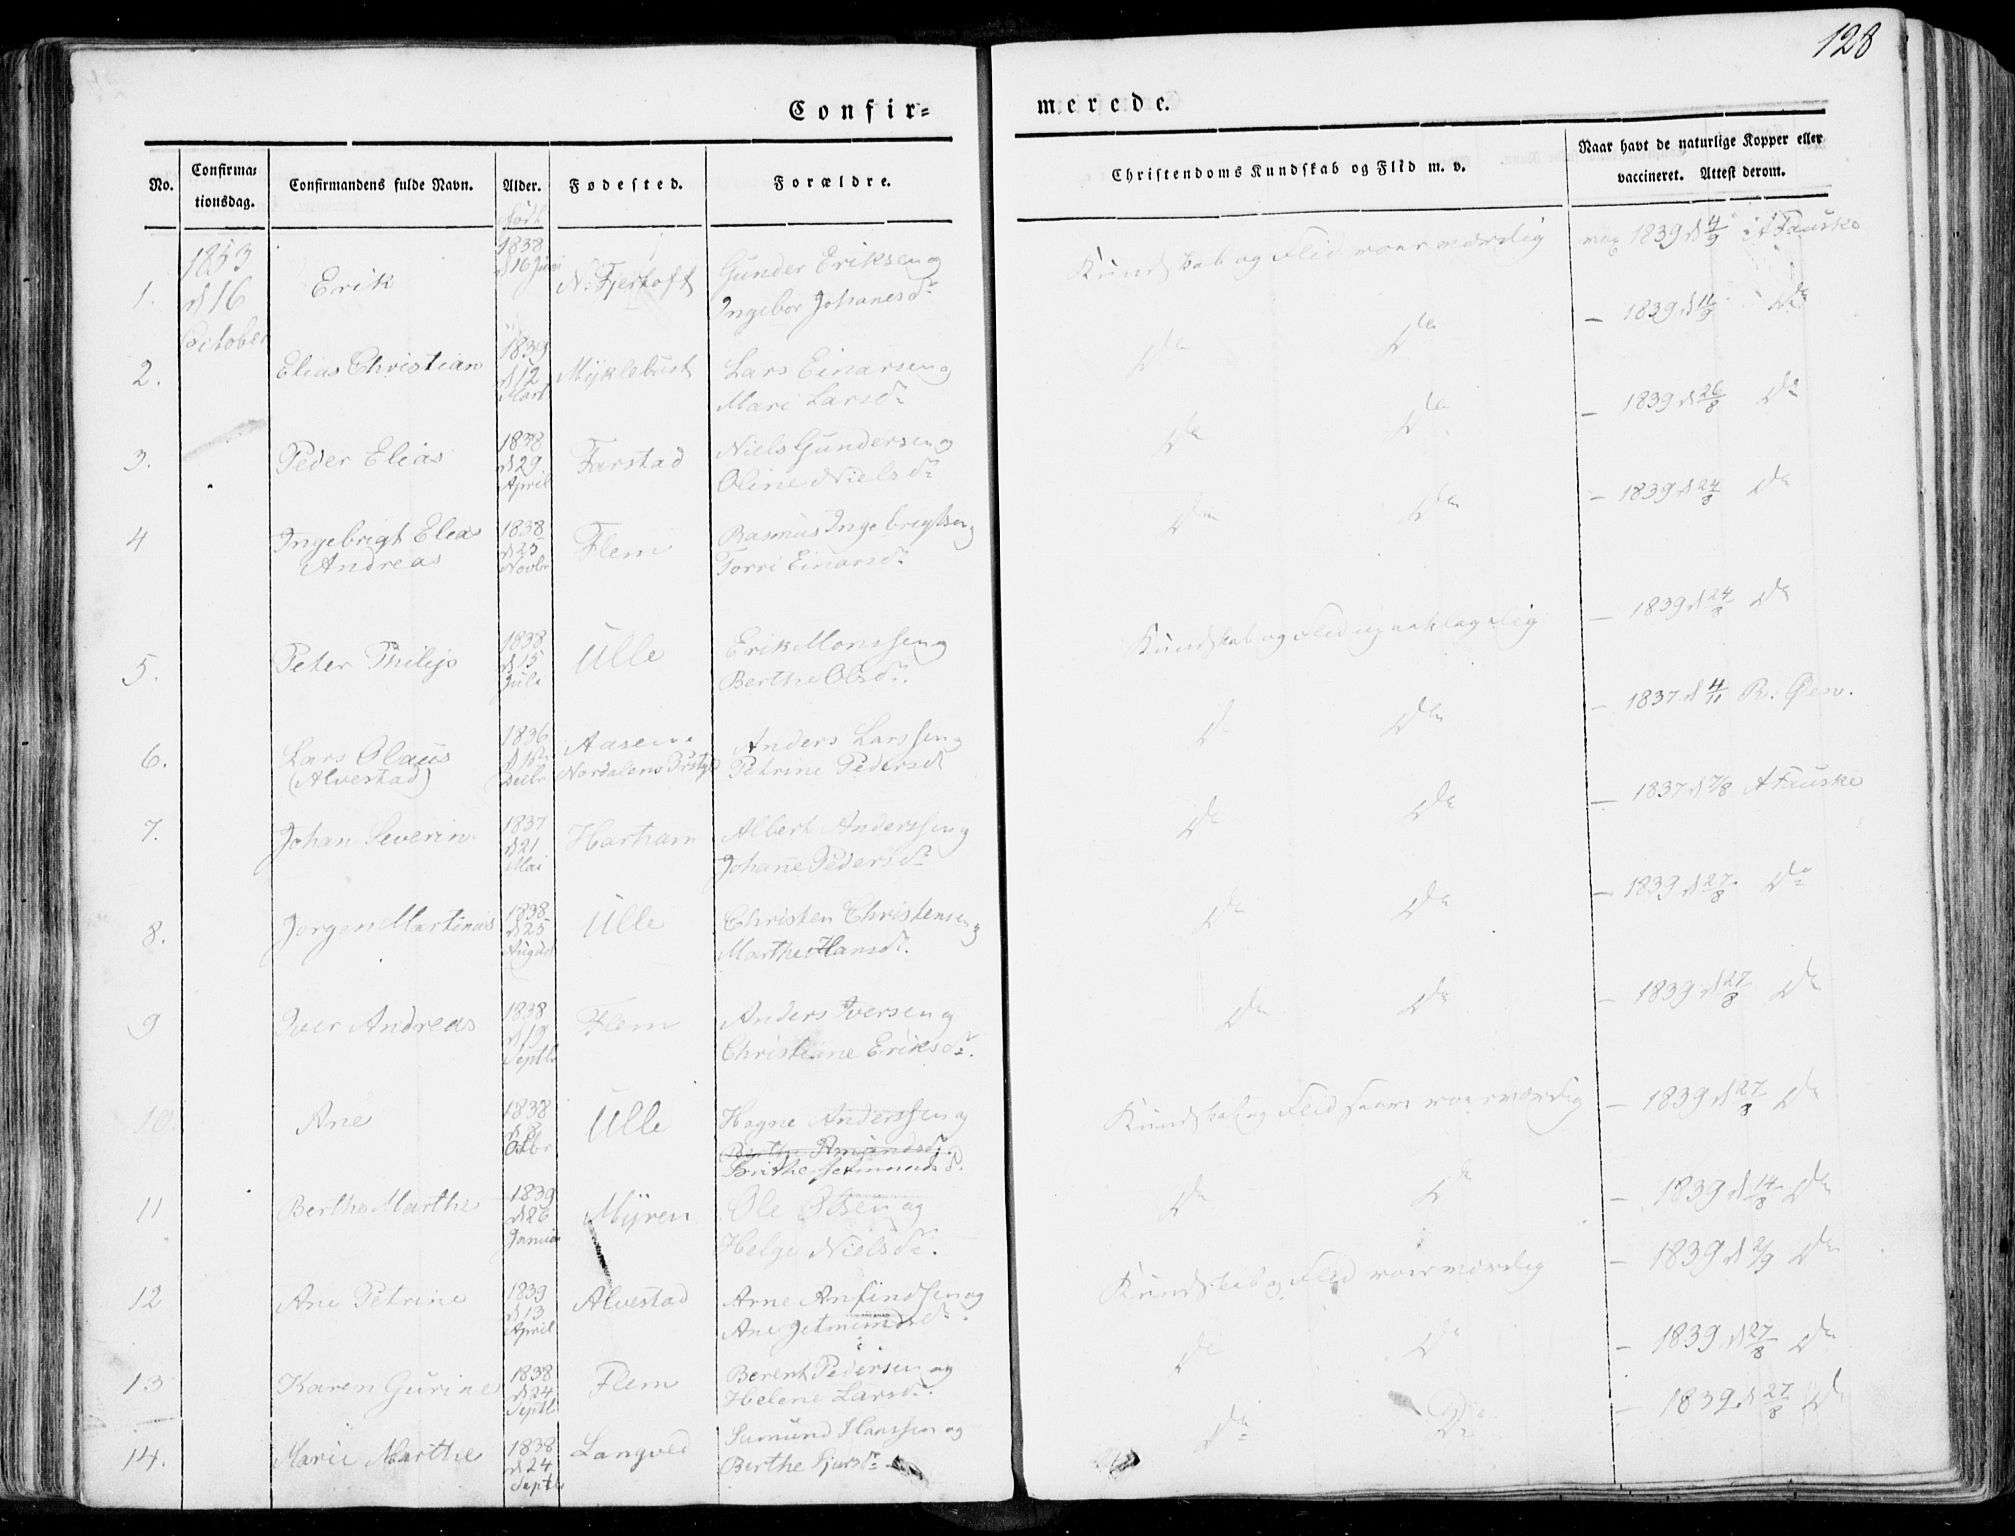 128
Confir=
merede.
No.
Confirma=
tionsdag.
Confirmandens fulde Navn.
Alder.
Fødested.
Forældre.
Christendoms Kundskab og Flid m. v.
Naar havt de naturlige Kopper eller
vaccineret. Attest derom.
født
1853
d 16
October
1.
Erik
1838
d 16 Juni
N: Fjertoft
Gunder Eriksen og
Ingebor Johanesdr
Kundskab og Flid
1839 d 4/9 i A Fauske
2.
Elias Christian
1839
d 12
Mart
Myklebust
Lars Einarsen og
Mari Larsdr
Do
Do
1839 d 11/9 Do
3.
Peder Elias
1838
d 29
April
Farstad
Niels Gundersen og
Oline Nielsdr
Do
Do
1839 d 26/8 Do
4
Ingebrigt Elias
Andreas
1838
d 25
Novbr
Flem
Rasmus Ingebrigtsen og
Torri Einarsdr
Do
Do
1839 d 24/8 Do
5.
Peter Philip
1838
d 15
Juli
Ulle
Erik Monssen og
Berthe Olsdr.
Kundskab og Flid
1839 d 24/8 Do
6.
Lars Olaus
(Alvestad)
1836
Decbr
Aasen
Nordalens Prstgld
Anders Larssen og
Petrine Pedersd
Do
Do
1837 d 4/11
7.
Johan Severin
1837
d 21
Mai
Harham
Albert Anderssen og
Johane Pedersdr
Do
Do
1837 d 7/8 A Fauske
8.
Jørgen Martinus
1838
d 25
August
Ulle
Christen Christensen og
Marthe Hansdr.
Do
Do
1839 d 27/8 Do
9
Iver Andreas
1838
d 19
Septbr
Flem
Anders Iversen og
Christiane Eriksdr.
Do
Do
1839 d 27/8 Do
10.
Ane
1838
d 8
Octbr
Ulle
Hagne Anderssen og
Berthe Amundsdr.
Kundskab og Flid
1839 d 27/8 Do
11
Berthe Marthe
1839
d 26
Januar
Myren
Ole Olsen og
Helge Nielsdr.
Do
Do
1839 d 14/8 Do
12
Ane Petrine
1839
d 13
April
Alvestad
Arne Anfindsen og
Ane Jetmundsdr.
Kundskab og Flid
1839 d 2/9 Do
13
Karen Gurine
1838
d 24
Septbr
Flem
Berent Pedersen og
Helene Larsdr.
Do
Do
1839 d 27/8 Do
14.
Marie Marthe
1838
d 24
Septbr
Langved
Sumund Hanssen og
Berthe
Do
Do
1839 d 27/8 Do